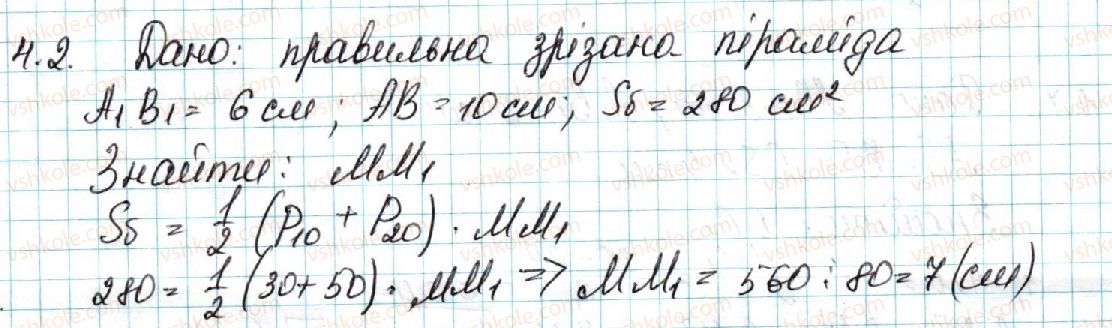 4.2. Дано: правильна зрізана піраміда
A₁B₁ = 6 см; AB = 10 см; Sб = 280 см²
Знайти: MM₁
Sб = 1/2 (P₁₀ + P₂₀) · MM₁
280 = 1/2 (30 + 50) · MM₁ => MM₁ = 560 : 80 = 7 (см)